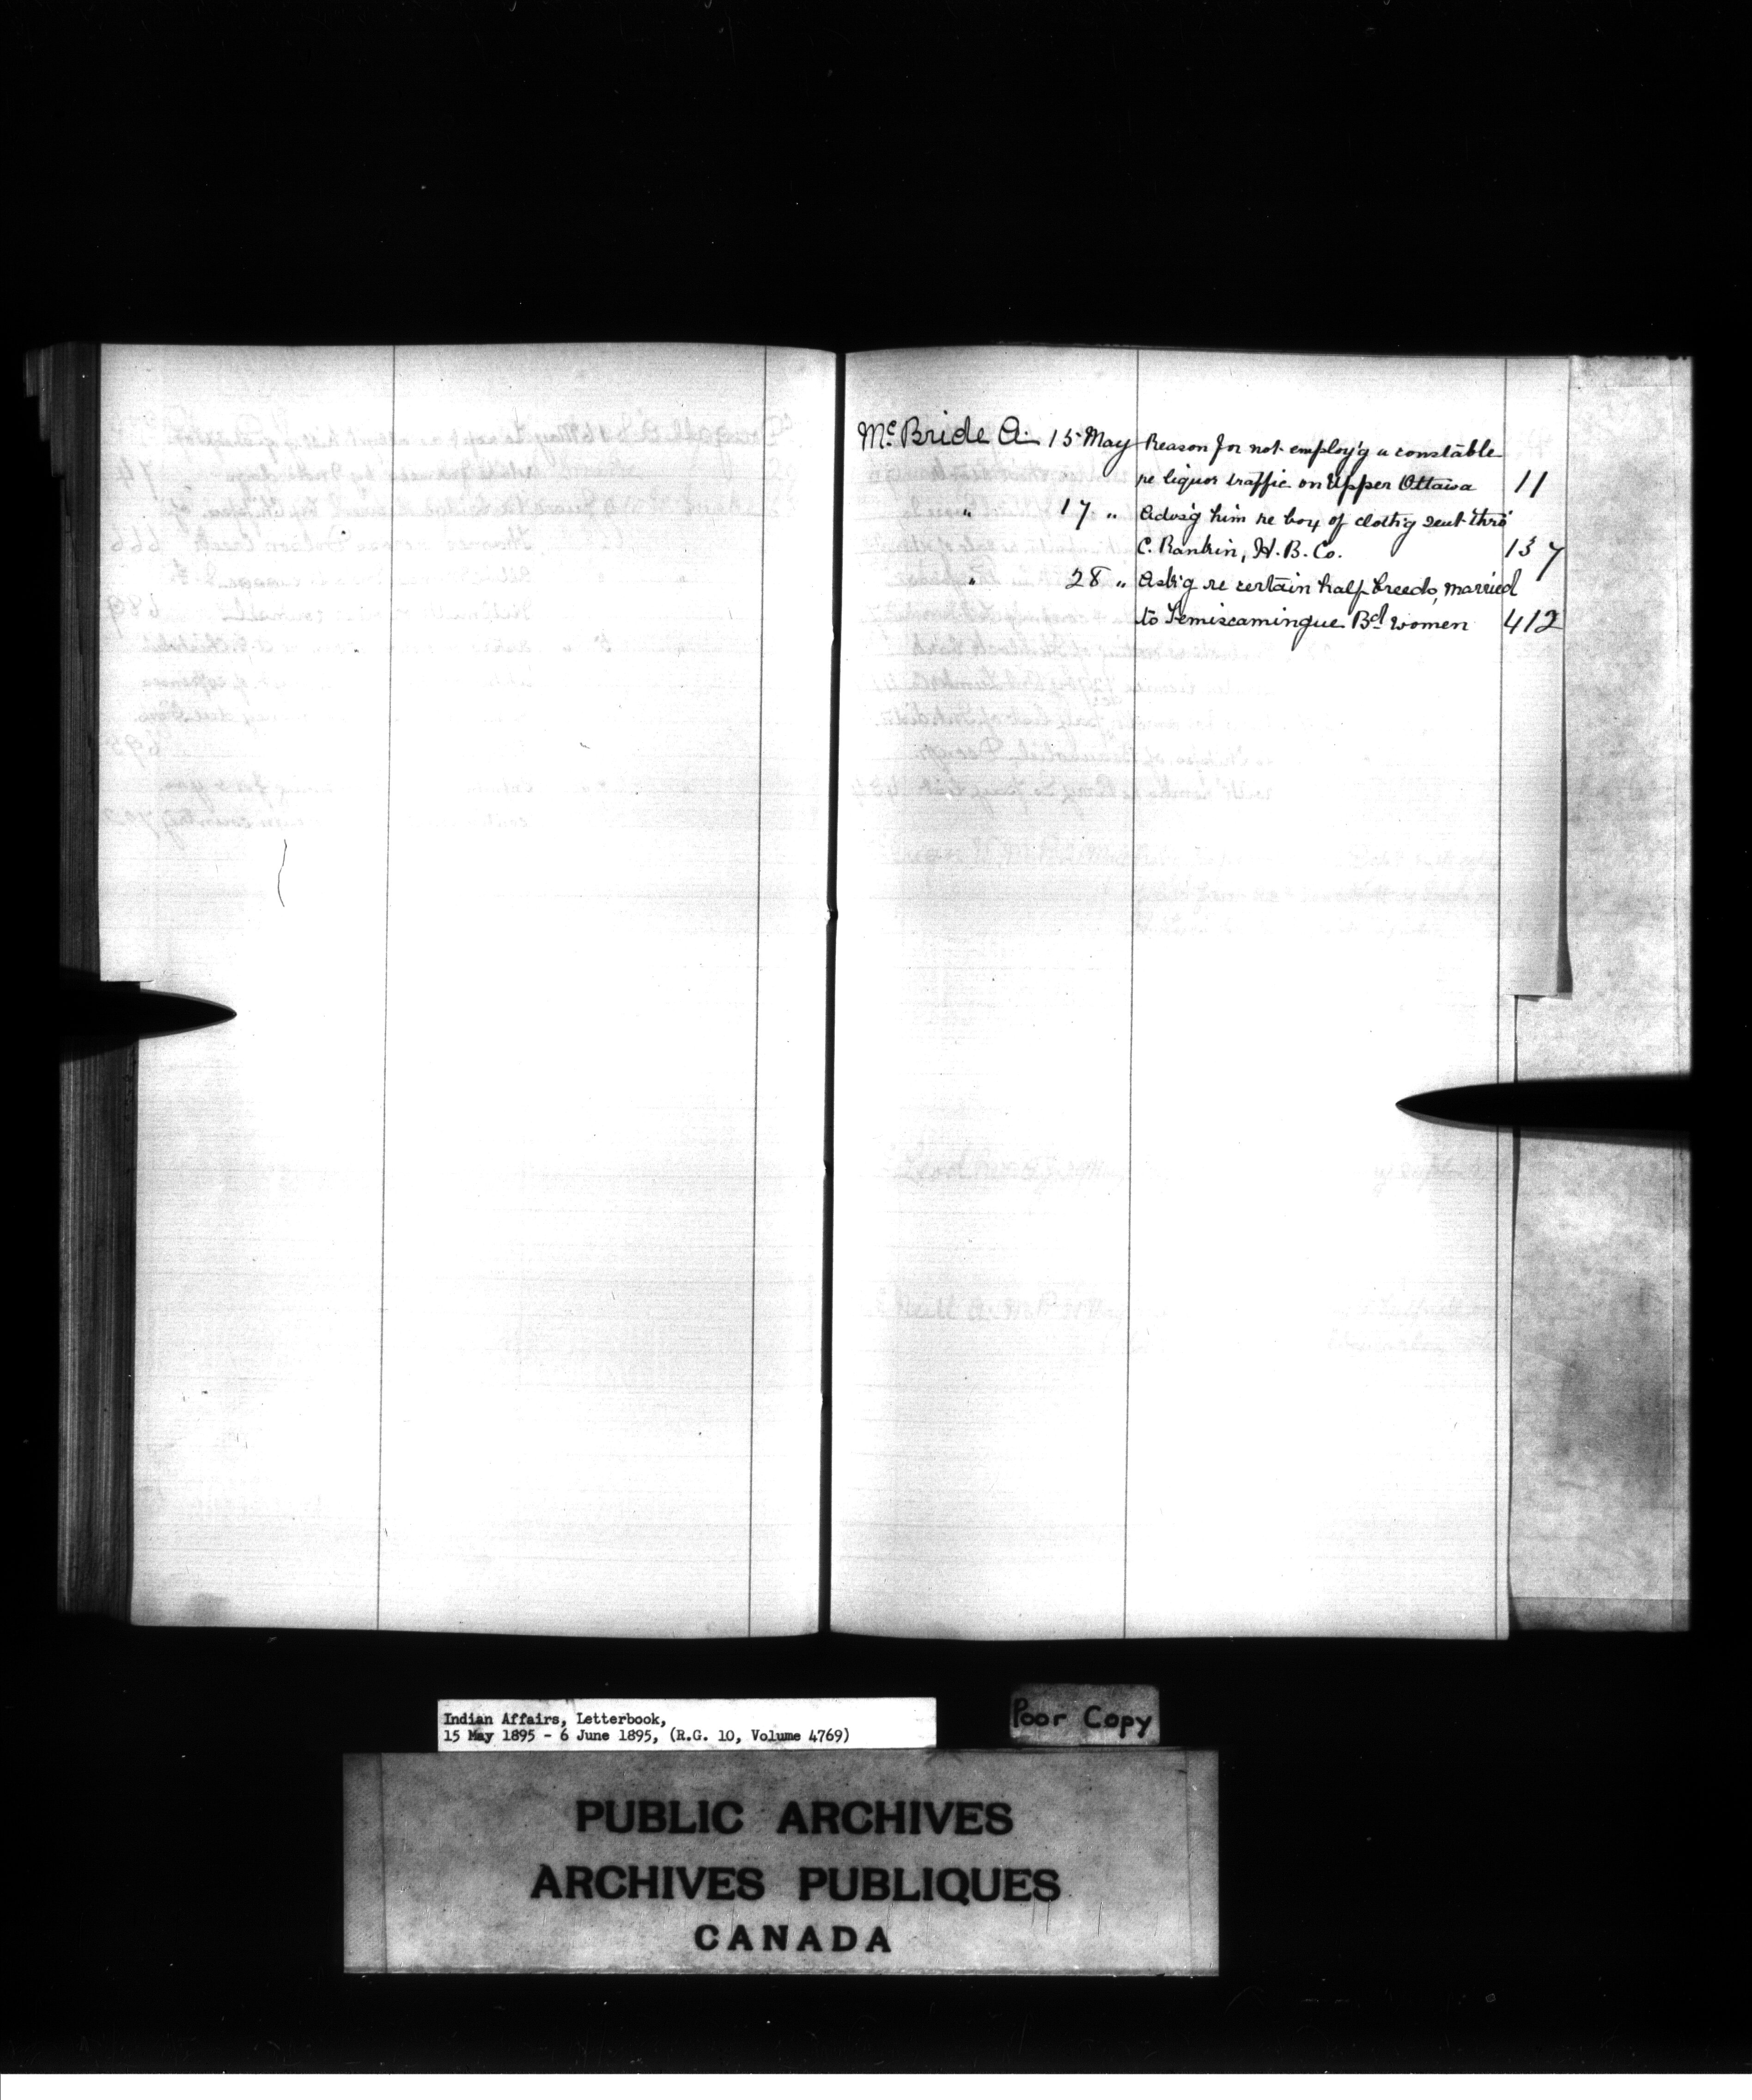 McBride A. 15 May Reason for not employ'g a constable
re liquor traffic on Upper Ottawa 11
" 17 " Advis'g him re box of cloth'g sent thro'
C. Rankin, H. B. Co. 137
" 28 " Ask'g re certain half breeds, married
to Temiscamingue Bd women 412
Indian Affairs, Letterbook,
15 May 1895 - 6 June 1895, (R.G. 10, Volume 4769)
Poor Copy
PUBLIC ARCHIVES
ARCHIVES PUBLIQUES
CANADA